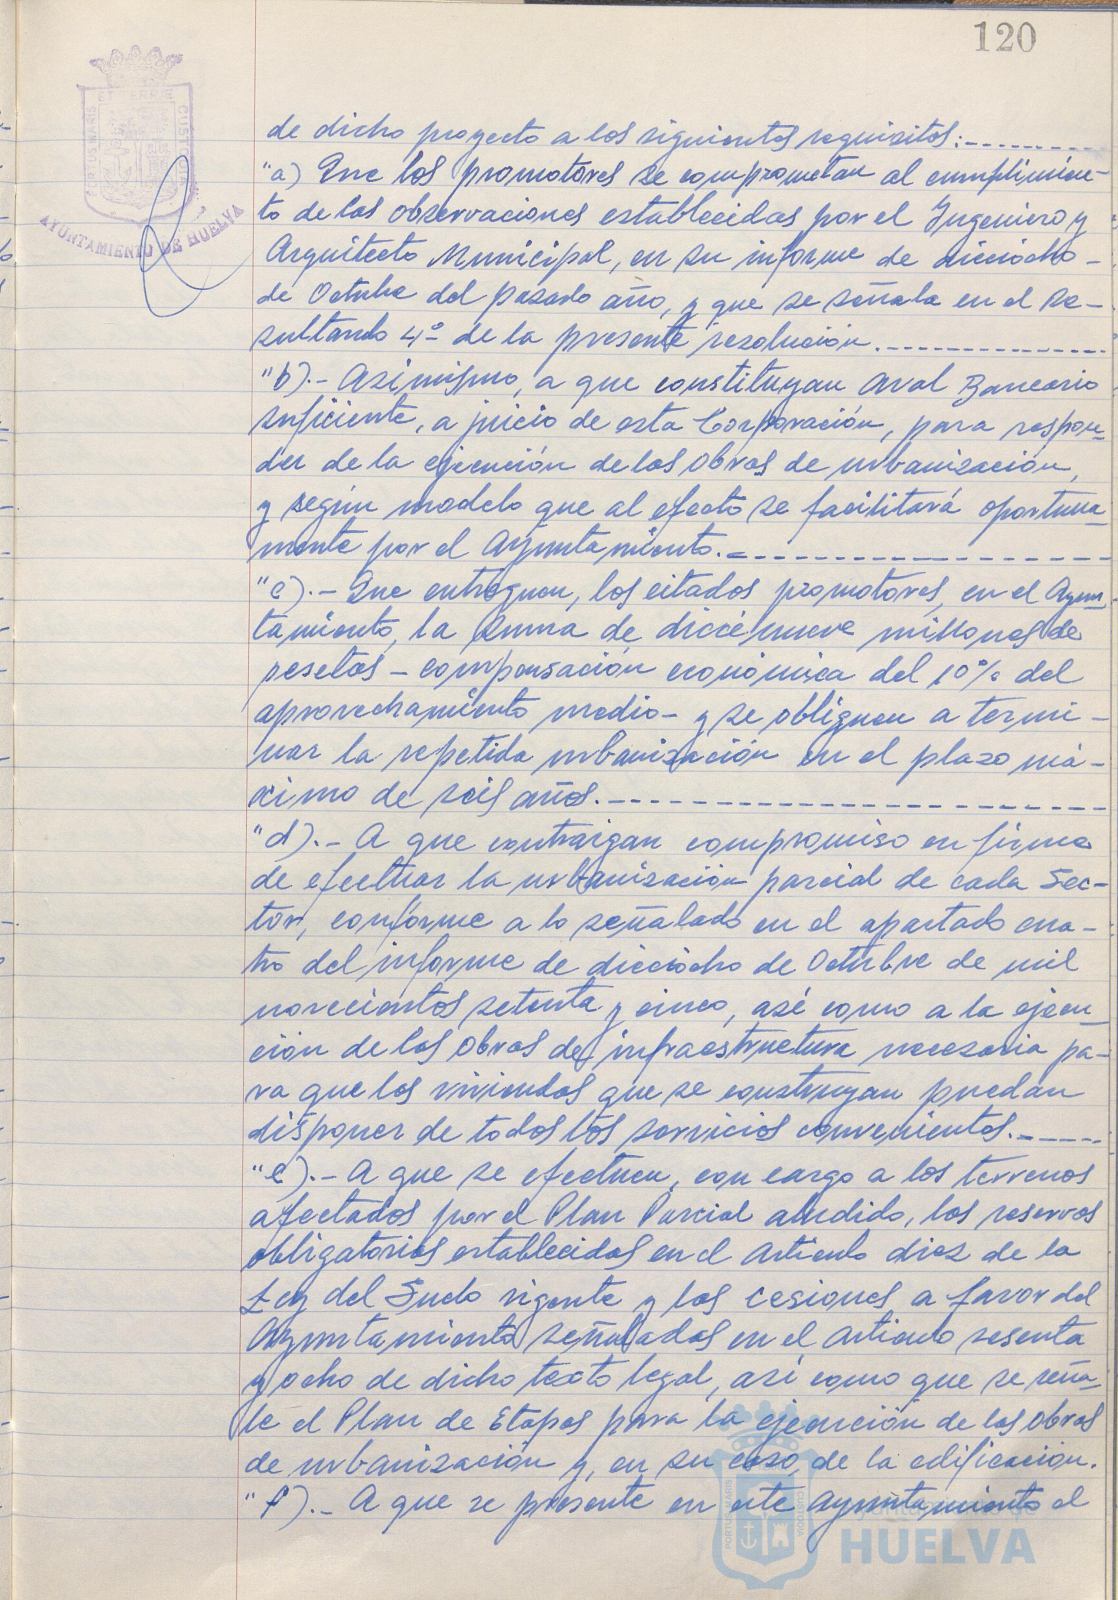 120
PORTUS MARIS ET TERRE CUSTODIA
AYUNTAMIENTO DE HUELVA
de dicho proyecto a los siguientes requisitos:
"a) Que los promotores se comprometan al cumplimien-
to de las observaciones establecidas por el Ingeniero y
Arquitecto Municipal, en su informe de dieciocho
de Octubre del pasado año, y que se señala en el Re-
sultando 4º de la presente resolución.
"b).- Asimismo, a que constituyan Aval Bancario
suficiente, a juicio de esta Corporación, para respon-
der de la ejecución de las obras de urbanización,
y según modelo que al efecto se facilitará oportuna-
mente por el Ayuntamiento.
"c).- Que entreguen, los citados promotores, en el Ayun-
tamiento, la suma de diecinueve millones de
pesetas - compensación económica del 10% del
aprovechamiento medio - y se obliguen a termi-
nar la repetida urbanización en el plazo má-
ximo de seis años.
"d).- A que contraigan compromiso en firme
de efectuar la urbanización parcial de cada Sec-
tor, conforme a lo señalado en el apartado cua-
tro del informe de dieciocho de Octubre de mil
novecientos setenta y cinco, asi como a la ejecu-
ción de las obras de infraestructura necesaria pa-
ra que las viviendas que se construyan puedan
disponer de todos los servicios convenientes.
"e).- A que se efectuen, con cargo a los terrenos
afectados por el Plan Parcial aludido, las reservas
obligatorias establecidas en el artículo diez de la
Ley del Suelo vigente y las cesiones a favor del
Ayuntamiento señaladas en el artículo sesenta
y ocho de dicho texto legal, así como que se seña-
le el Plan de Etapas para la ejecución de las obras
de urbanización y, en su caso, de la edificación.
"f).- A que se presente en este Ayuntamiento el
PORTUS MARIS CUSTODIA
Ayuntamiento de
HUELVA